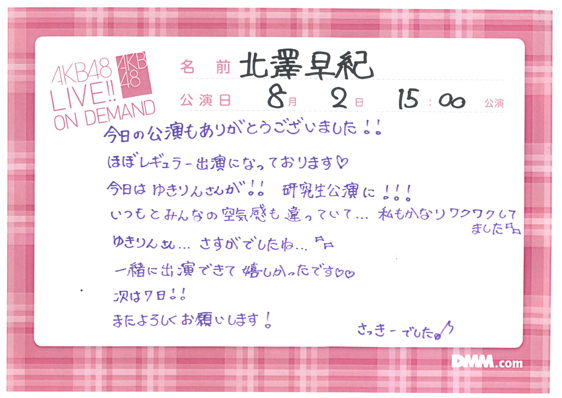 AKB48
LIVE!!
ON DEMAND
AKB
48
名 前 北澤早紀
公演日 8月 2日 15:00 公演
今日の公演もありがとうございました!!
ほぼレギュラー出演になっております♡
今日はゆきりんさんが!! 研究生公演に!!!
いつもとみんなの空気感も違っていて... 私もかなりワクワクして
ました♫
ゆきりんさん... さすがでしたね...♫
一緒に出演できて嬉しかったです♡♡
次は7日!!
またよろしくお願いします!
さっきーでした♪
DMM.com